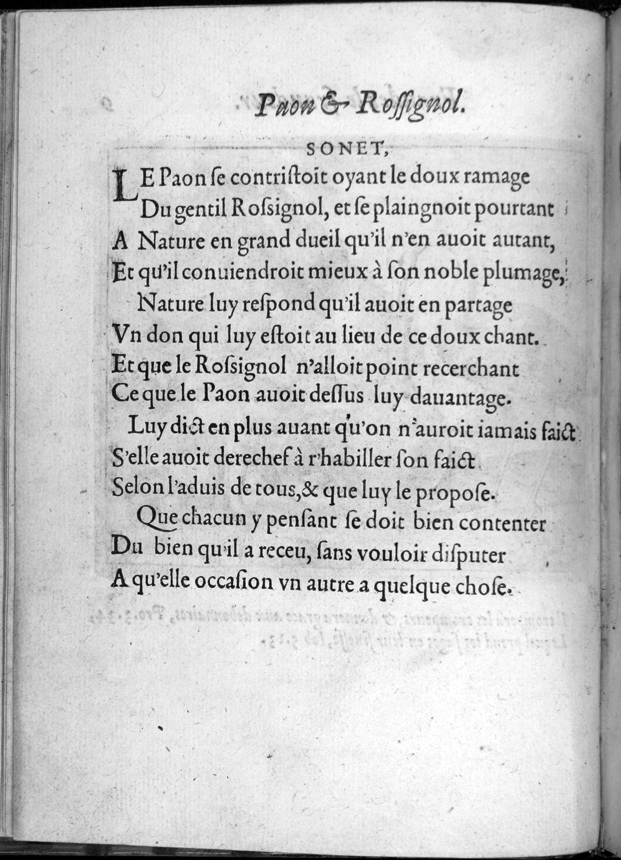 Paon & Rossignol.
SONET,
LE Paon se contristoit oyant le doux ramage
Du gentil Rossignol, et se plaingnoit pourtant
A Nature en grand dueil qu'il n'en auoit autant,
Et qu'il conuiendroit mieux à son noble plumage,
Nature luy respond qu'il auoit en partage
Vn don qui luy estoit au lieu de ce doux chant.
Et que le Rossignol n'alloit point recerchant
Ce que le Paon auoit dessus luy dauantage.
Luy dict en plus auant qu'on n'auroit iamais faict
S'elle auoit derechef à r'habiller son faict
Selon l'aduis de tous, & que luy le propose.
Que chacun y pensant se doit bien contenter
Du bien qu'il a receu, sans vouloir disputer
A qu'elle occasion vn autre a quelque chose.